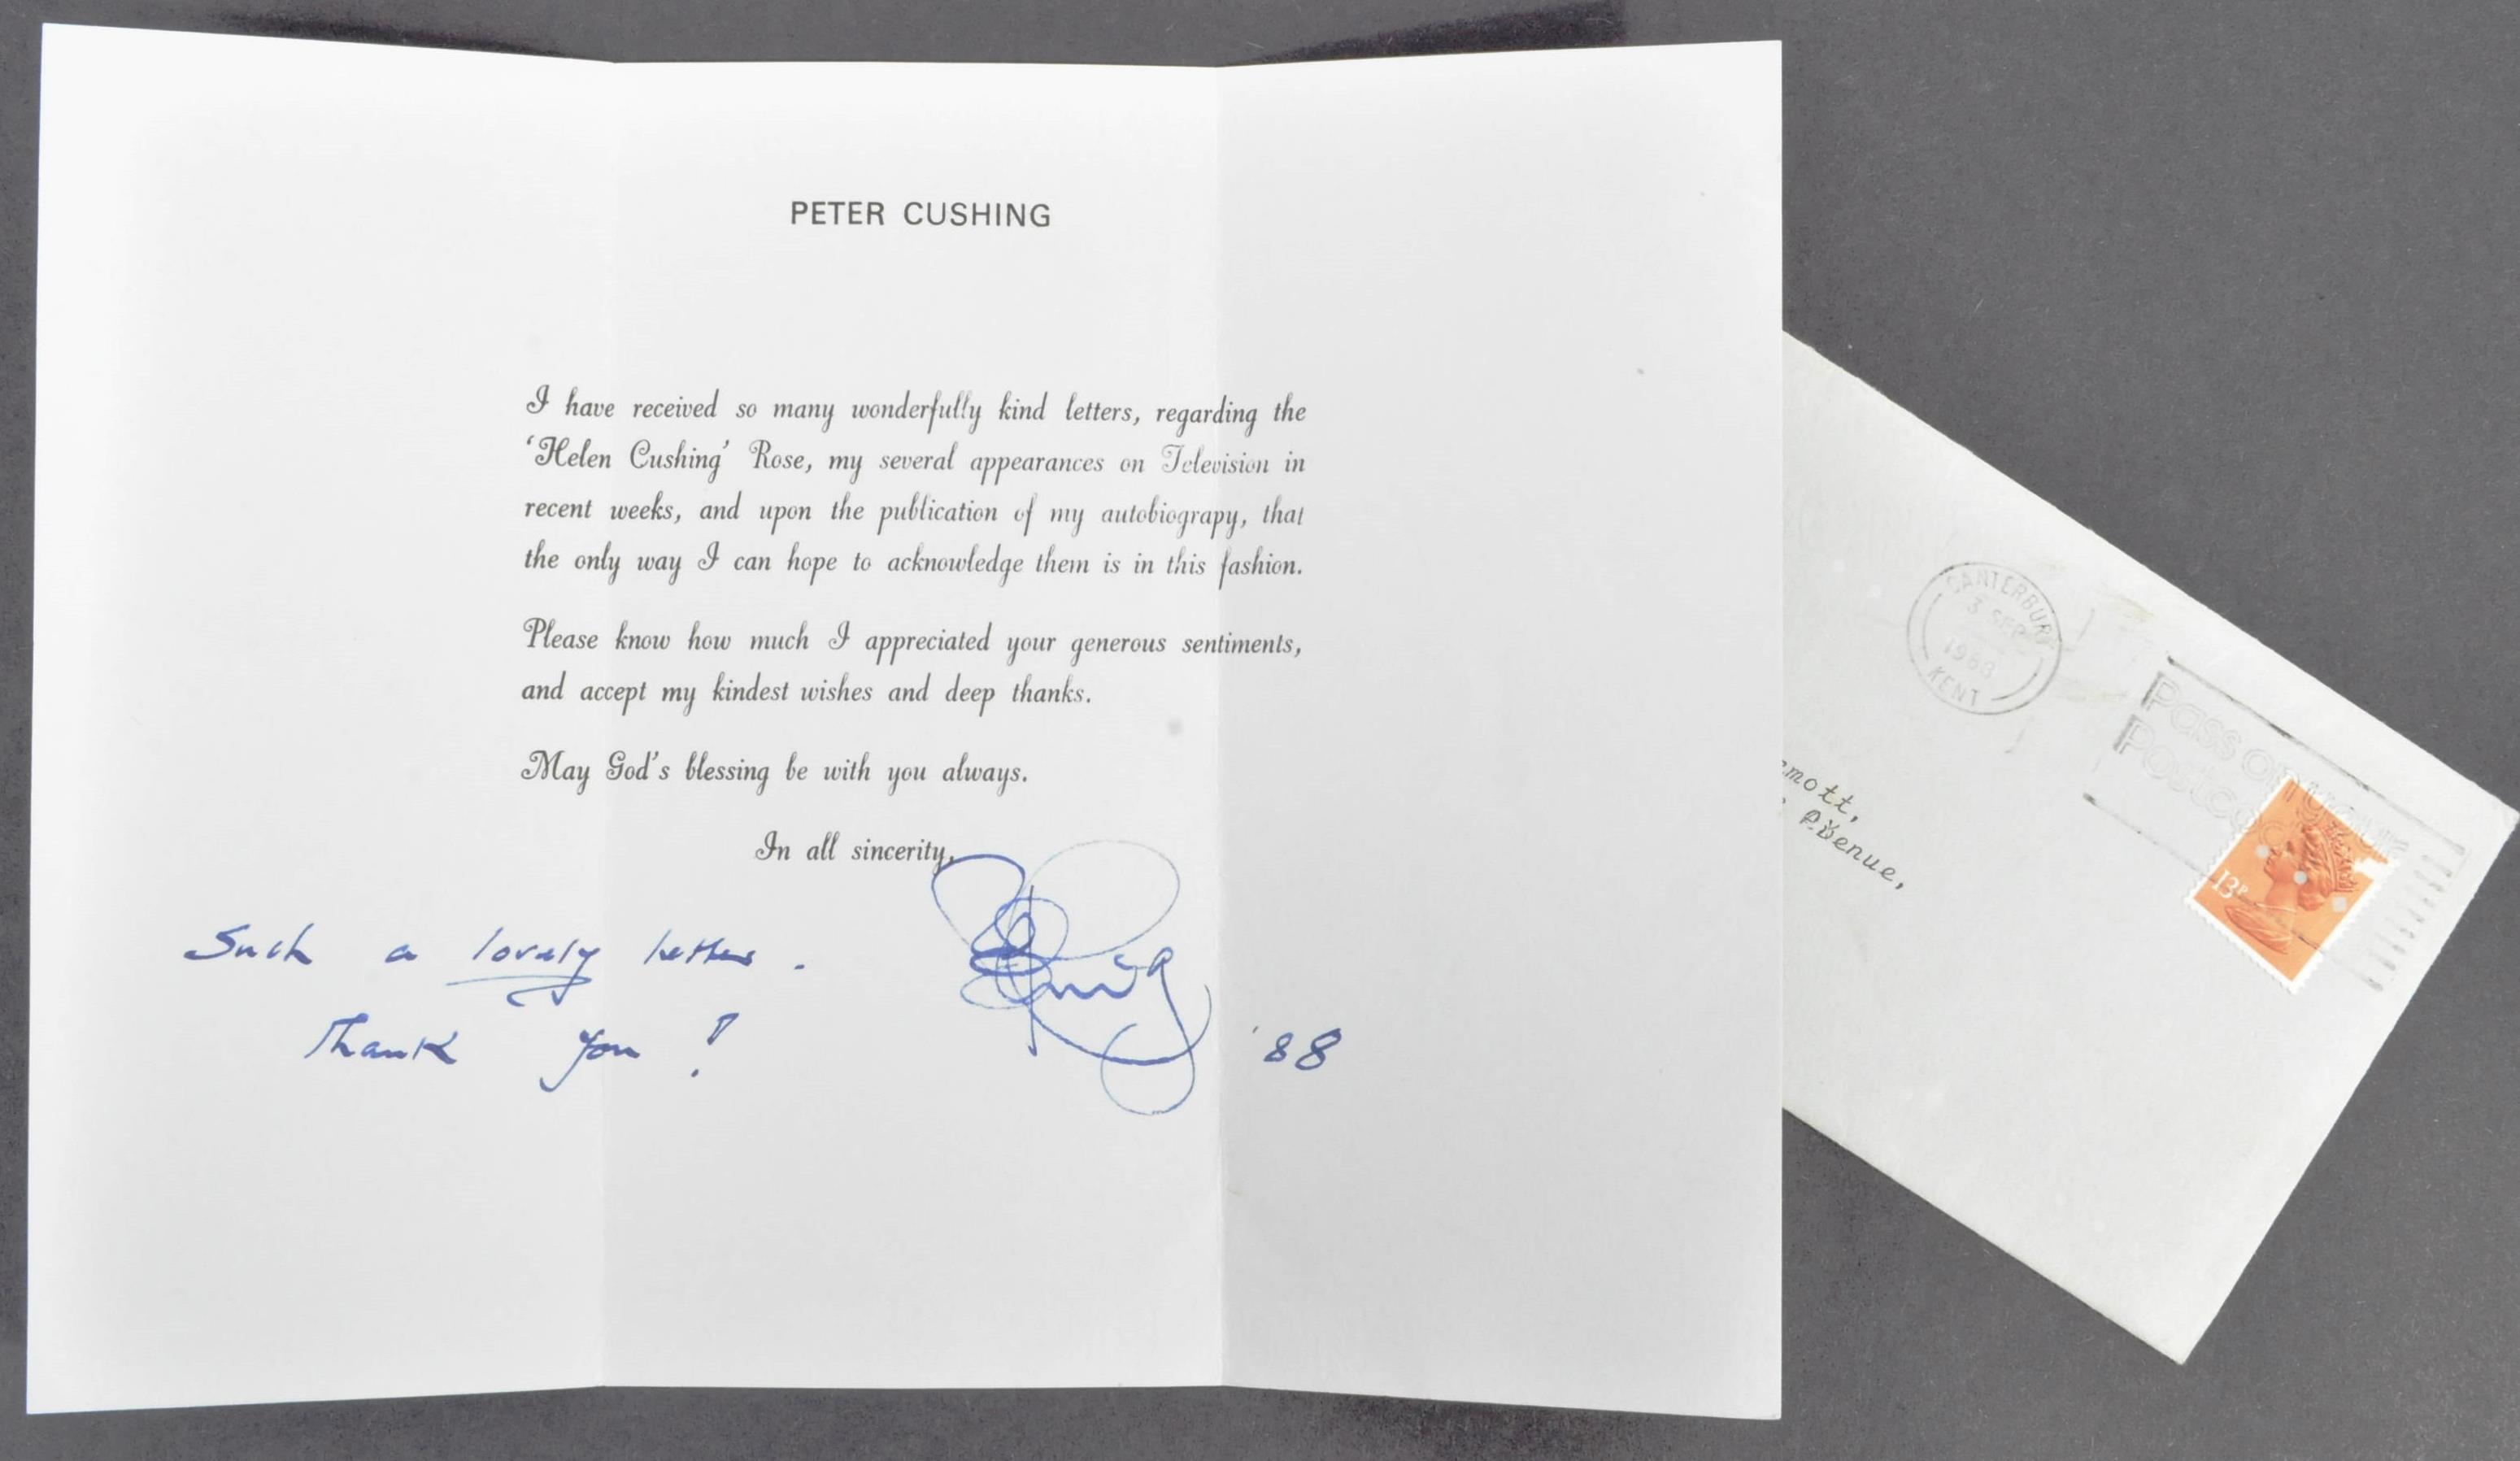 PETER CUSHING
I have received so many wonderfully kind letters, regarding the
‘Helen Cushing’ Rose, my several appearances on Television in
recent weeks, and upon the publication of my autobiograpy, that
the only way I can hope to acknowledge them is in this fashion.
Please know how much I appreciated your generous sentiments,
and accept my kindest wishes and deep thanks.
May God's blessing be with you always.
In all sincerity,
Such a lovely letter.
Thank you!
'88
CANTERBURY
3 SEP
1988
KENT
Pass on your
Postcode
mott,
Avenue,
13P